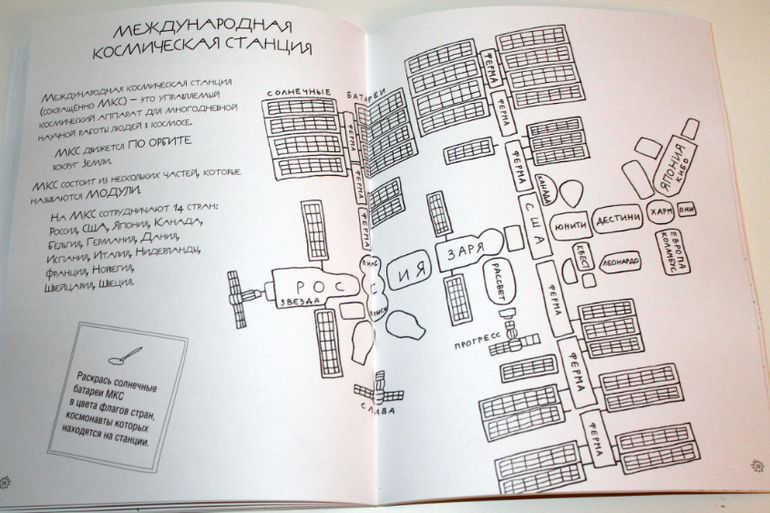 МЕЖДУНАРОДНАЯ
КОСМИЧЕСКАЯ СТАНЦИЯ
МЕЖДУНАРОДНАЯ КОСМИЧЕСКАЯ СТАНЦИЯ
(СОКРАЩЁННО МКС) – ЭТО УПРАВЛЯЕМЫЙ
КОСМИЧЕСКИЙ АППАРАТ ДЛЯ МНОГОДНЕВНОЙ
НАУЧНОЙ РАБОТЫ ЛЮДЕЙ В КОСМОСЕ.
МКС ДВИЖЕТСЯ ПО ОРБИТЕ
ВОКРУГ ЗЕМЛИ.
МКС СОСТОИТ ИЗ НЕСКОЛЬКИХ ЧАСТЕЙ, КОТОРЫЕ
НАЗЫВАЮТСЯ МОДУЛИ.
НА МКС СОТРУДНИЧАЮТ 14 СТРАН:
РОССИЯ, США, ЯПОНИЯ, КАНАДА,
БЕЛЬГИЯ, ГЕРМАНИЯ, ДАНИЯ,
ИСПАНИЯ, ИТАЛИЯ, НИДЕРЛАНДЫ,
ФРАНЦИЯ, НОРВЕГИЯ,
ШВЕЙЦАРИЯ, ШВЕЦИЯ.
Раскрась солнечные
батареи МКС
в цвета флагов стран,
космонавты которых
находятся на станции.
СОЛНЕЧНЫЕ БАТАРЕИ
ФЕРМА
ФЕРМА
ФЕРМА
ФЕРМА
ФЕРМА
ФЕРМА
КАНАДА
США
ЯПОНИЯ
КИБО
ЮНИТИ
ДЕСТИНИ
ХАРМ
ОНИ
ЕВРОПА
КОЛАМБУС
КВЕСТ
ЛЕОНАРДО
ЗАРЯ
РАССВЕТ
ПИРС
РОССИЯ
ЗВЕЗДА
ПОИСК
ПРОГРЕСС
СЛАВА
ФЕРМА
ФЕРМА
ФЕРМА